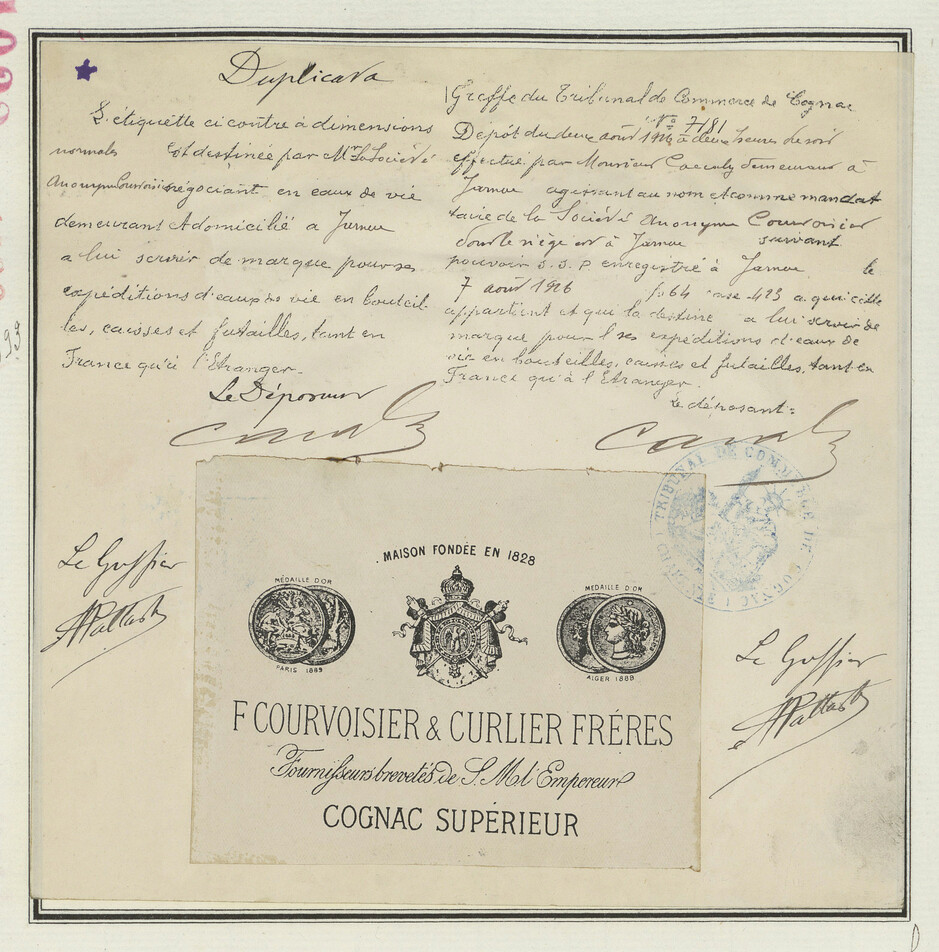 Duplicata
L'étiquette ci contre à dimensions
normales est destinée par Mr La Société
Anonyme Courvoisier négociant en eaux de vie
demeurant et domicilié a Jarnac
a lui servir de marque pour ses
expéditions d'eaux de vie en bouteil-
les, caisses et futailles, tant en
France qu'à l'Etranger.
Le Déposant
Greffe du Tribunal de Commerce de Cognac
No 7181
Dépôt du deux août 1926 à deux heures du soir
effectué par Monsieur demeurant à
Jarnac agissant au nom et comme mandat
taire de la Société Anonyme Courvoisier
dont le siège est à Jarnac suivant
pouvoir S.S.P enregistré à Jarnac le
7 août 1926 fo 64 case 423 a qui cette
appartient et qui la destine a lui servir de
marque pour les expéditions d'eaux de
vie en bouteilles, caisses et futailles, tant en
France qu'à l'Etranger.
Le déposant:
TRIBUNAL DE COMMERCE DE COGNAC
MAISON FONDÉE EN 1828
MÉDAILLE D'OR
PARIS 1889
MEDAILLE D'OR
ALGER 1888
F COURVOISIER & CURLIER FRÉRES
Fournisseurs brevetés de S. M. l'Empereur
COGNAC SUPÉRIEUR
Le Greffier
Le Greffier